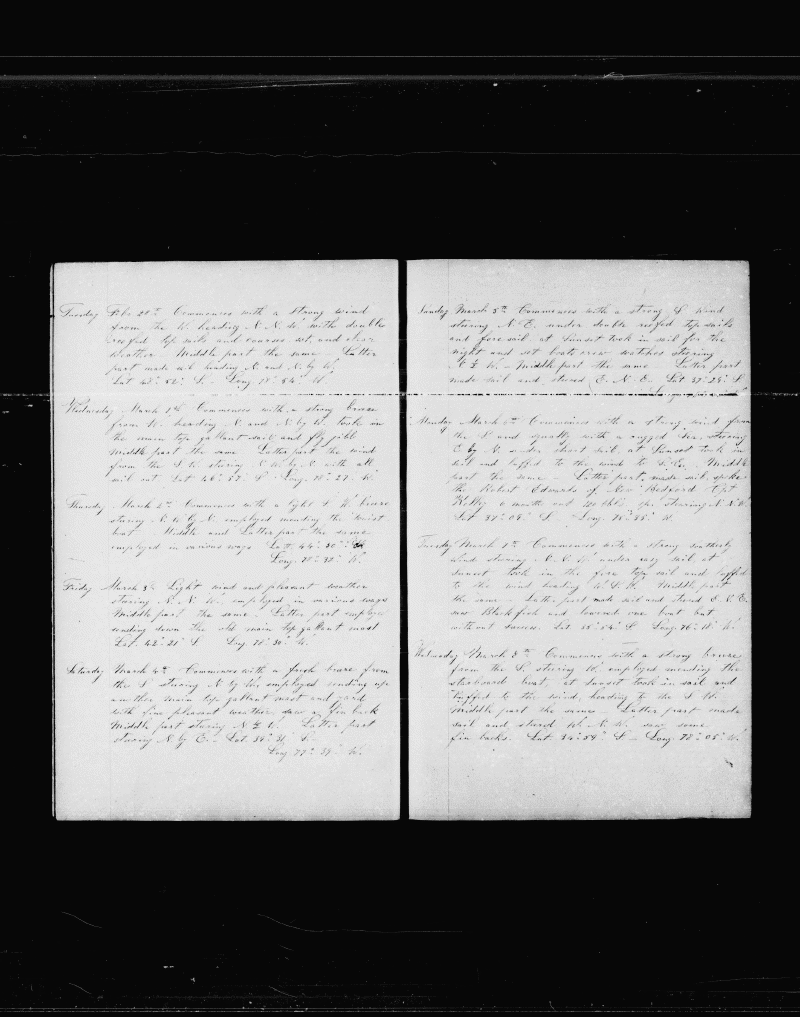 Tuesday Feb. 28th Commences with a strong wind
from the W. heading N. N. W. with double
reefed top sails and courses set, and clear
weather. Middle part the same. Latter
part made sail heading N. and N. by W.
Lat 48° 52' S. Long 78° 54' W.
Wednesday March 1st Commences with a strong breeze
from W. heading N. and N. by W. took in
the main top gallant sail and fly jibb
Middle part the same. Latter part the wind
from the S. W. stering N. W. by N. with all
sail out. Lat 46° 57' S. Long 78° 27' W.
Thursday March 2d Commences with a light S. W. breeze
stering N. W. by N. employed mending the waist
boat. Middle and Latter part the same
employed in various ways. Lat. 44° 30' S
Long. 78° 32' W.
Friday March 3d Light wind and pleasant weather
stering N. N. W. employed in various ways
Middle part the same. Latter part employed
sending down the old main top gallant mast
Lat. 42° 21' S. Long 78° 30' W.
Saturday March 4th Commences with a fresh breeze from
the S. stering N by W. employed sending up
another main top gallant mast and yard
with fine pleasant weather, saw a fin back
Middle part stering N. & W. Latter part
stering N. by E. Lat. 39° 31' S.
Long 77° 39' W.
Sunday March 5th Commences with a strong S. Wind
stering N. E. under double reefed top sails
and fore sail at Sunset took in sail for the
night and set boats crew watches stering
N. & W. Middle part the same. Latter part
made sail and stered E. N. E. Lat 37° 28' S.
Monday March 6th Commences with a strong wind from
the S and squally with a rugged Sea, stering
E. by N. under short sail, at Sunset took in
sail and luffed to the wind to S. E. Middle
part the same. Latter part, made sail, spoke
the Robert Edwards of New Bedford Capt
Kelly 6 months out
Lat 37° 08' S. Long. 75° 55' W.
Tuesday March 7th Commences with a strong southerly
wind stering N. E. under easy sail at
sunset took in the fore top sail and luffed
to the wind heading W. S. W. Middle part
the same. Latter part made sail and stered E. N. E.
saw Blackfish and lowered one boat but
without success. Lat 35° 54' S. Long. 76° 18' W.
Wednesday March 8th Commences with a strong breeze
from the S. stering W. employed mending the
starboard boat, at sunset took in sail and
luffed to the wind, heading to the S. W.
Middle part the same. Latter part made
sail and stered W. N. W. saw some
fin backs. Lat. 34° 59' S. Long. 78° 05' W.